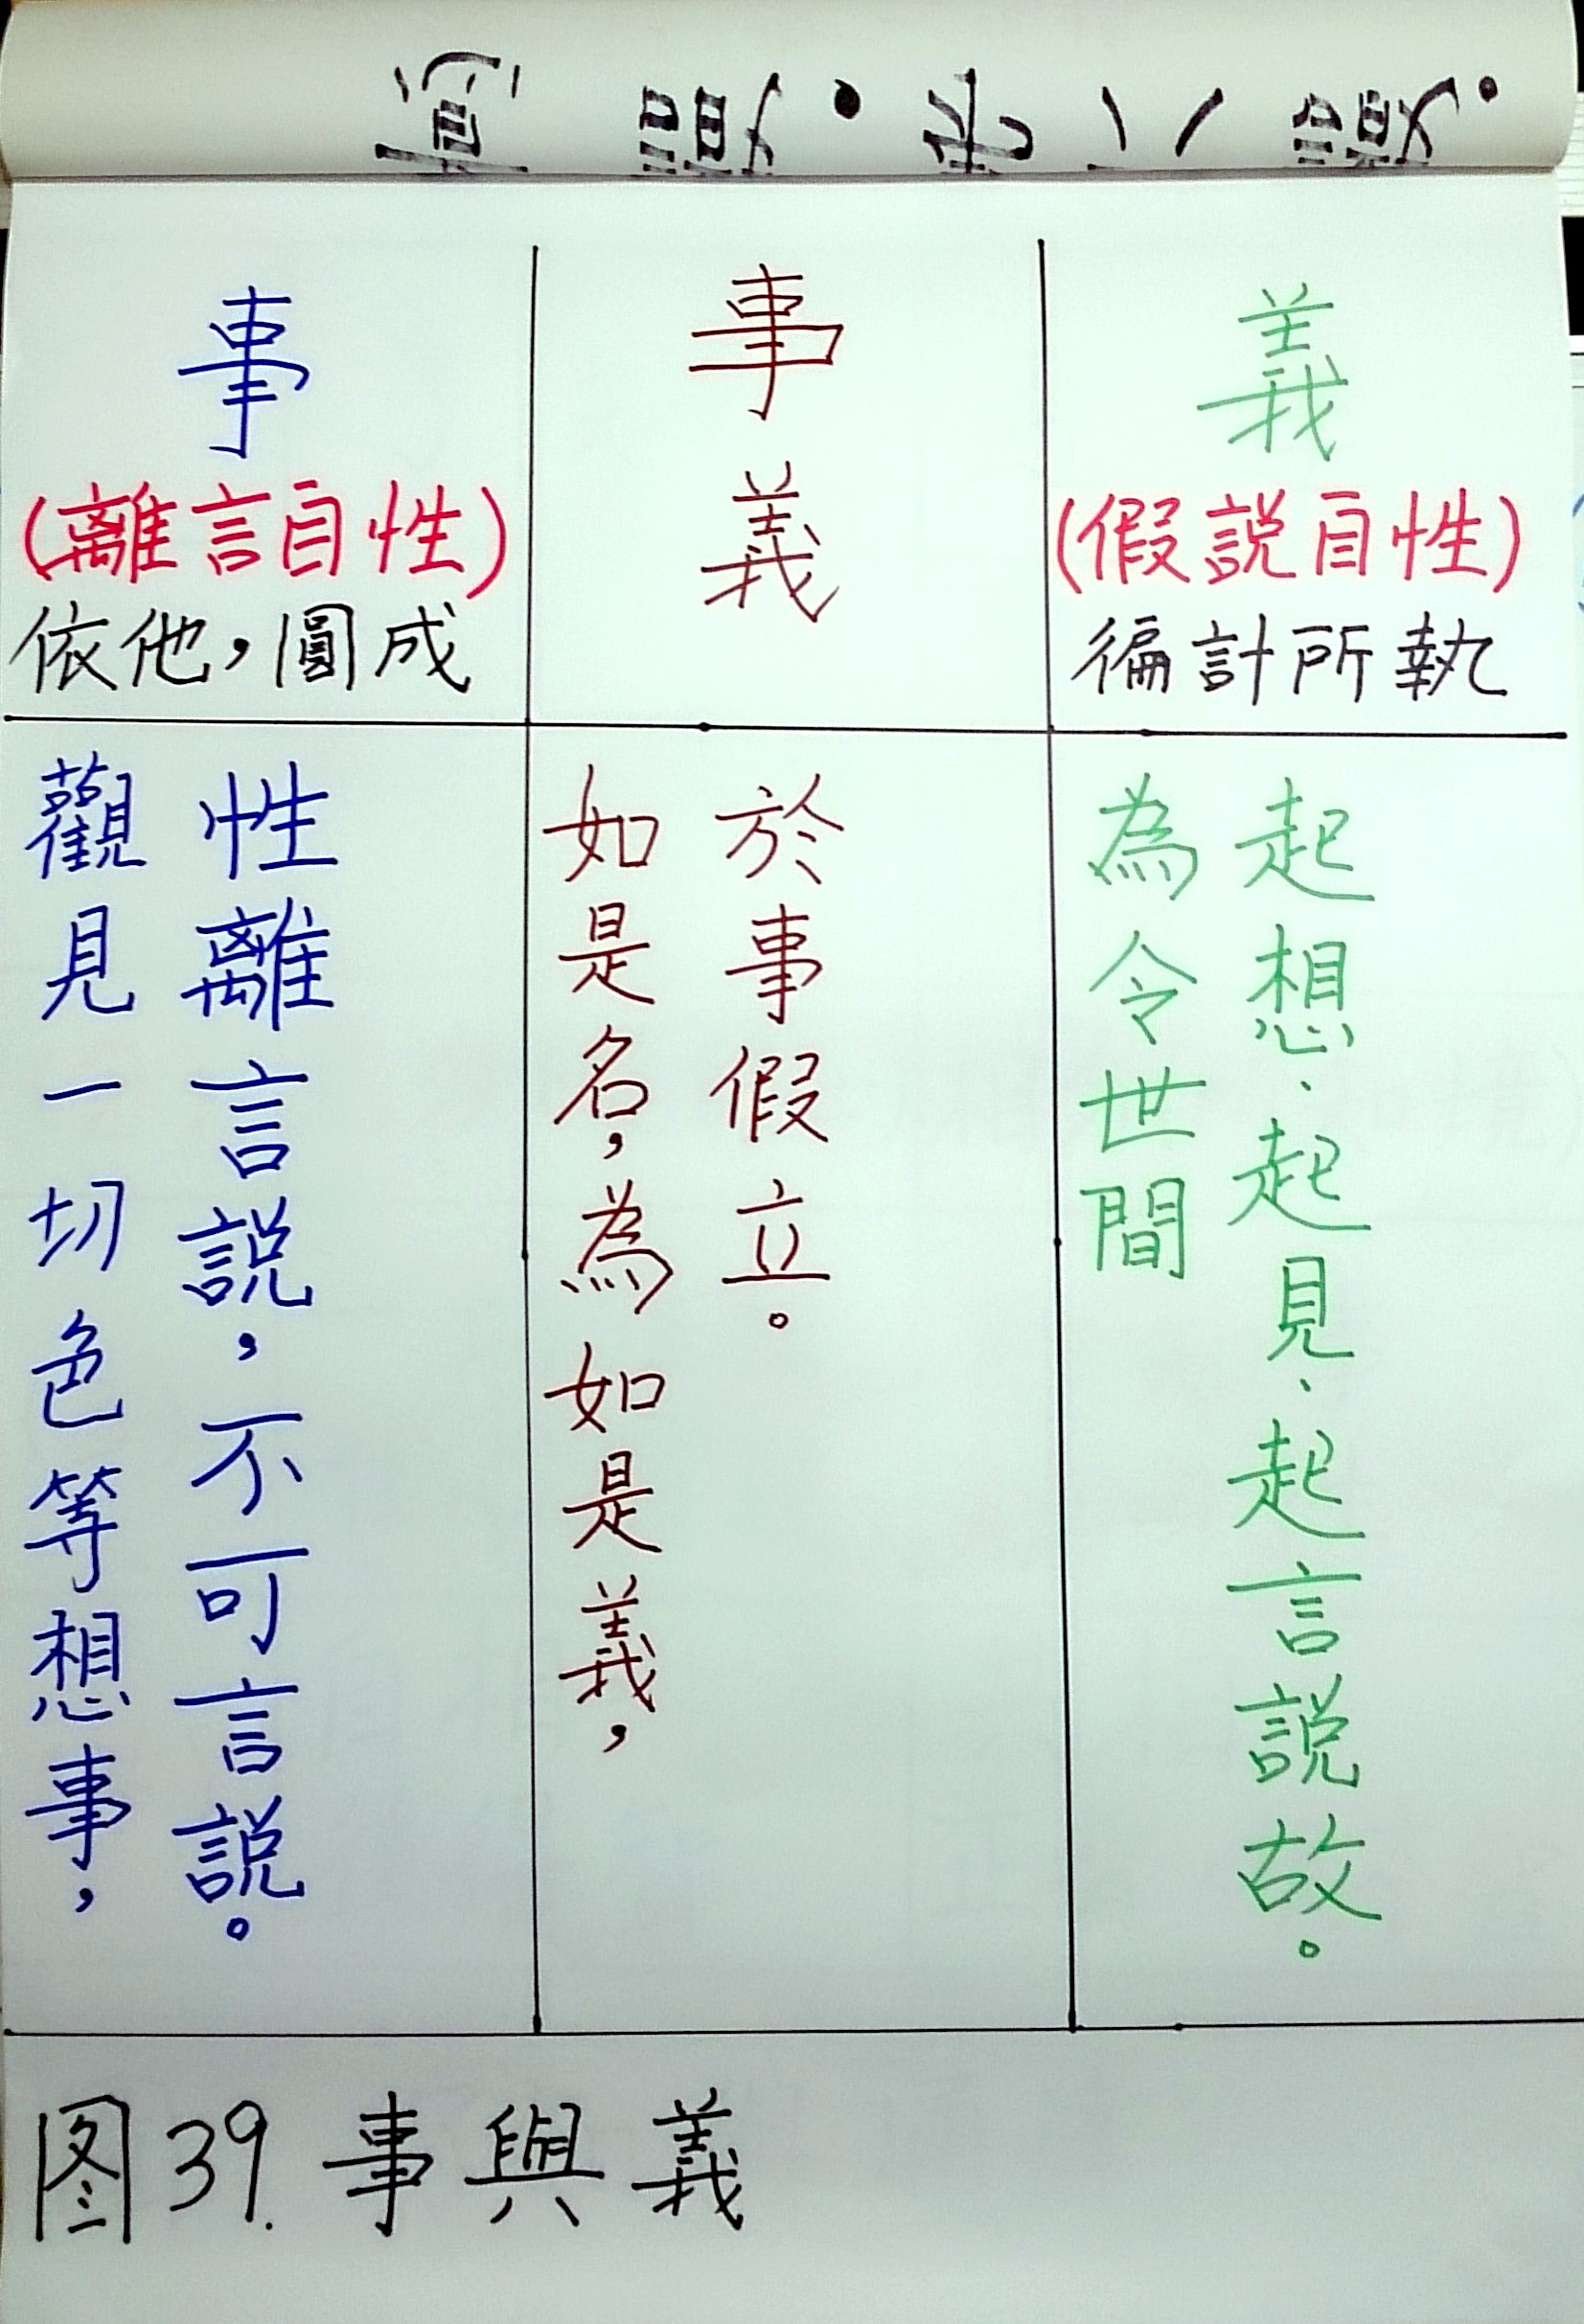 事
(離言自性)
依他，圓成
事
義
義
(假説自性)
徧計所執
觀見一切色等想事，
性離言説，不可言説。
如是名，為如是義，
於事假立。
為令世間
起想、起見、起言説故。
图39.事與義